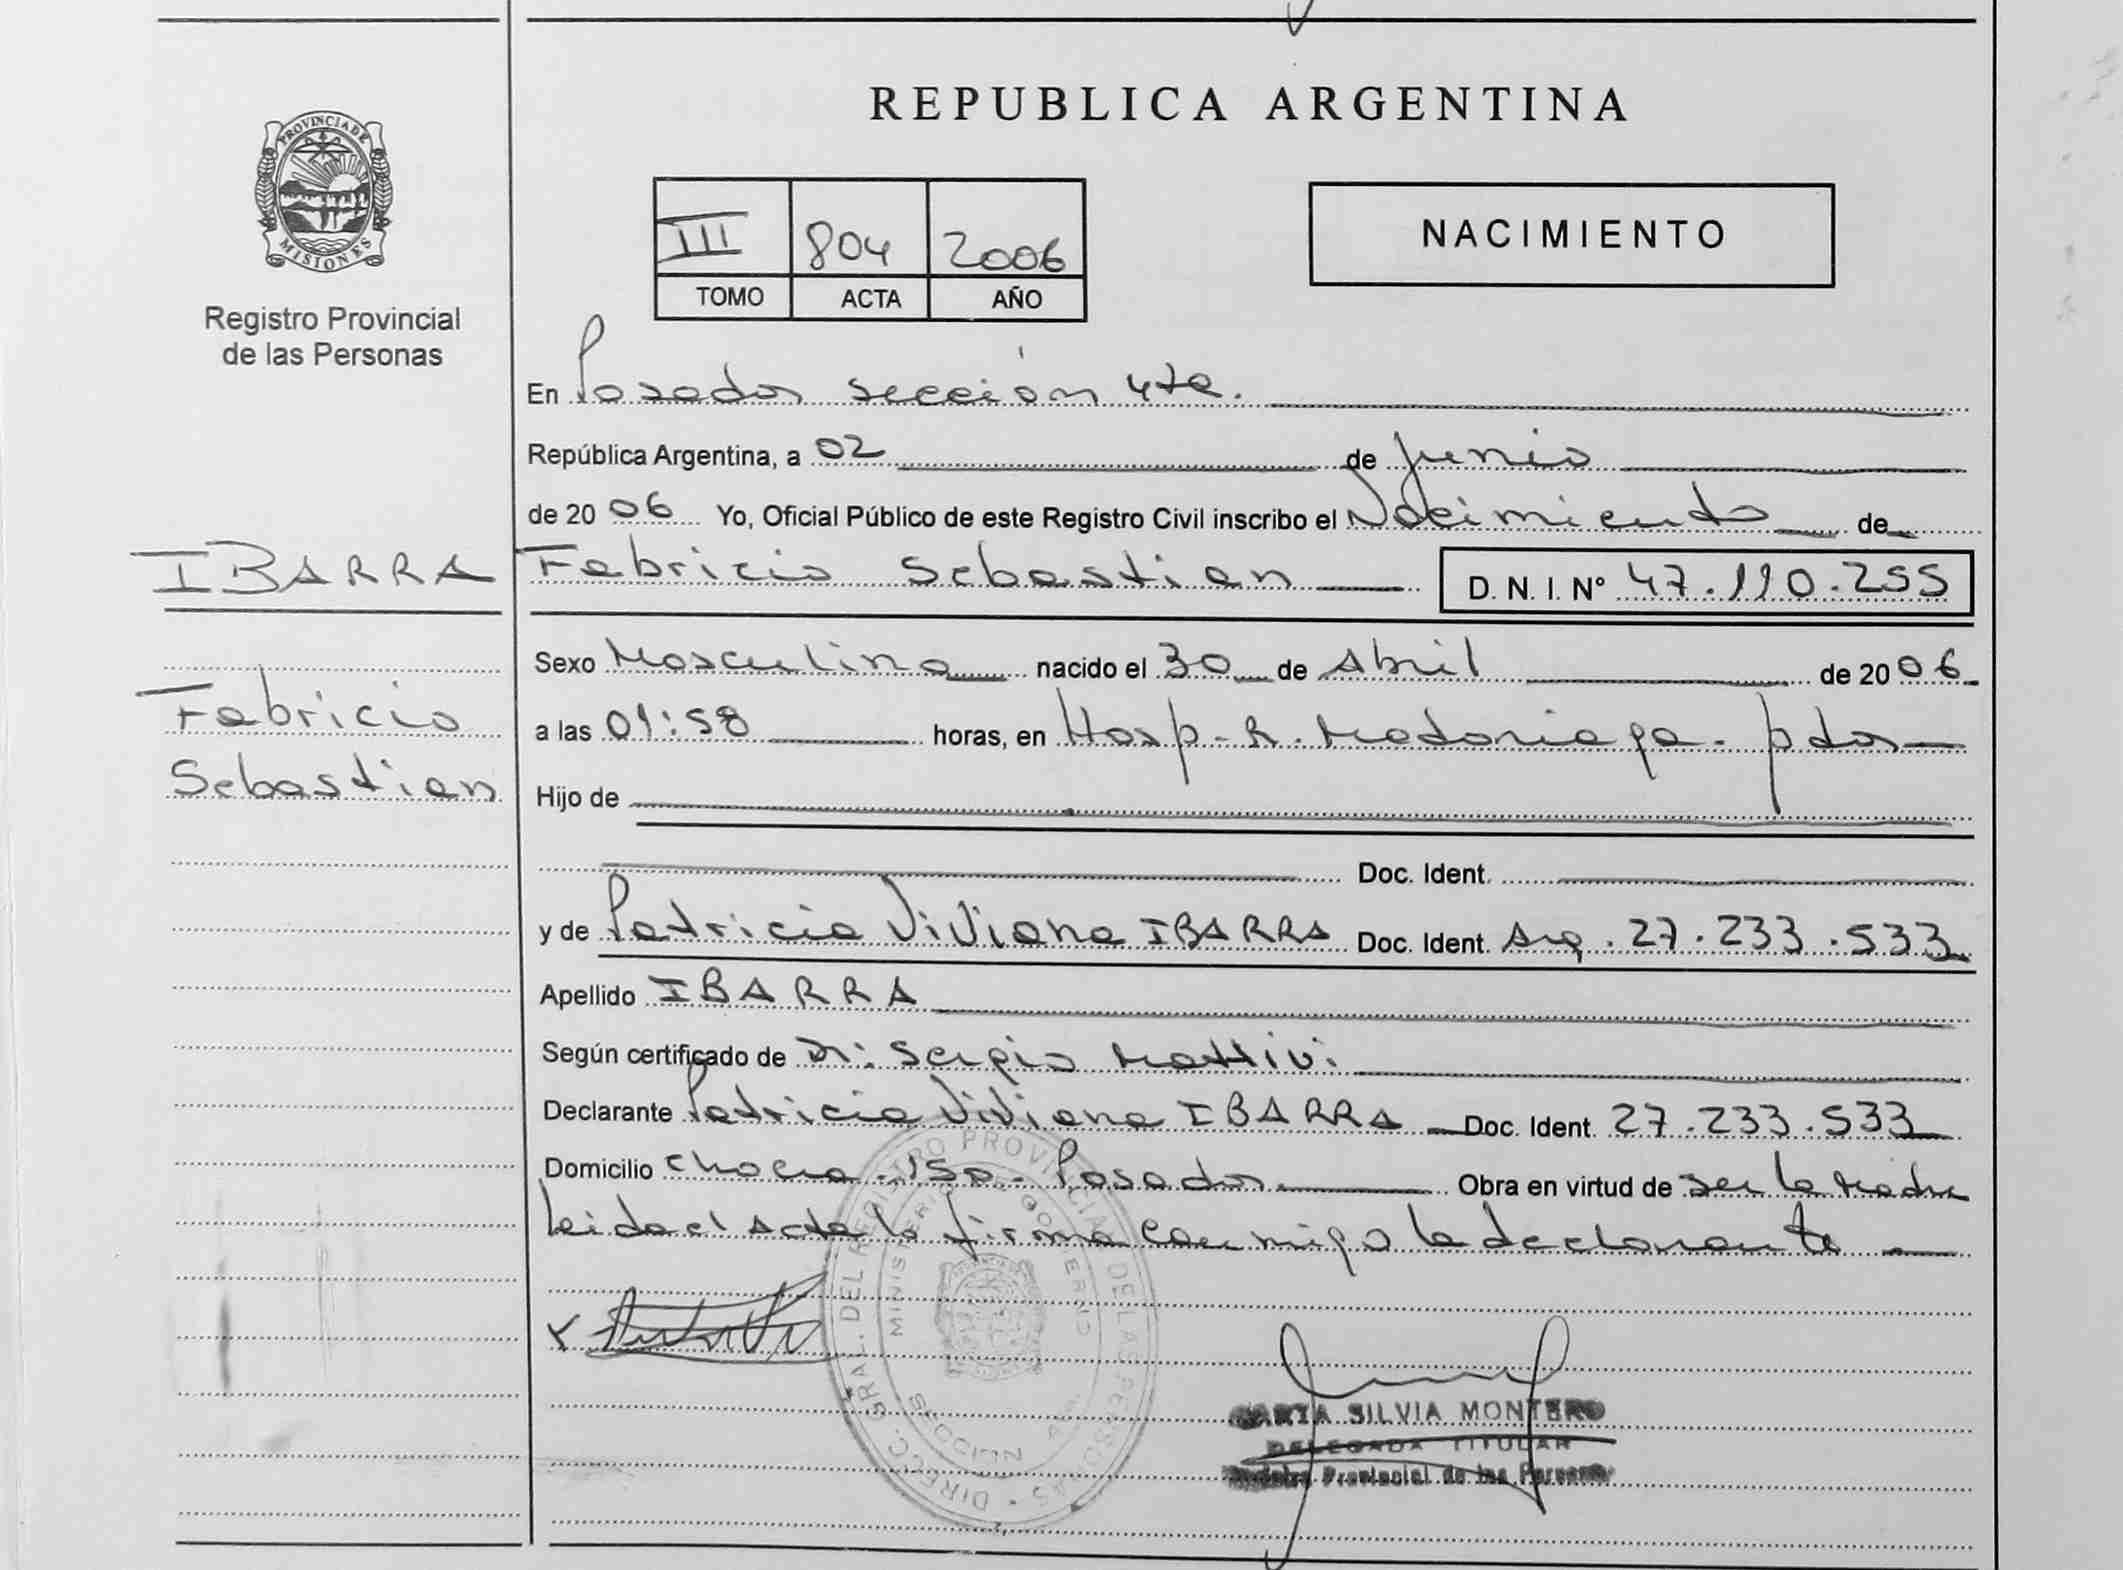 REPUBLICA ARGENTINA
PROVINCIA DE MISIONES
Registro Provincial
de las Personas
III 804 2006
TOMO ACTA AÑO
NACIMIENTO
En Posadas sección 4ta.
República Argentina, a 02 de Junio
de 2006 Yo, Oficial Público de este Registro Civil inscribo el Nacimiento de
IBARRA
Fabricio Sebastian D. N. I. Nº 47.110.255
Fabricio
Sebastian
Sexo Masculino nacido el 30 de Abril de 2006
a las 01:58 horas, en Hosp. R. Madariaga. pdas
Hijo de
Doc. Ident.
y de Patricia Viviana IBARRA Doc. Ident. Arg. 27.233.533
Apellido IBARRA
Según certificado de Dr: Sergio Mattivi
Declarante Patricia Viviana IBARRA Doc. Ident. 27.233.533
Domicilio Chacra 150. Posadas Obra en virtud de ser la Madre
leida el Acta la firma conmigo la declarante
DIRECC. GRAL. DEL REGISTRO PROVINCIAL DE LAS PERSONAS
MINISTERIO DE GOBIERNO
SECCION 4ta.
SILVIA MONTERO
DELEGADA TITULAR
Registro Provincial de las Personas